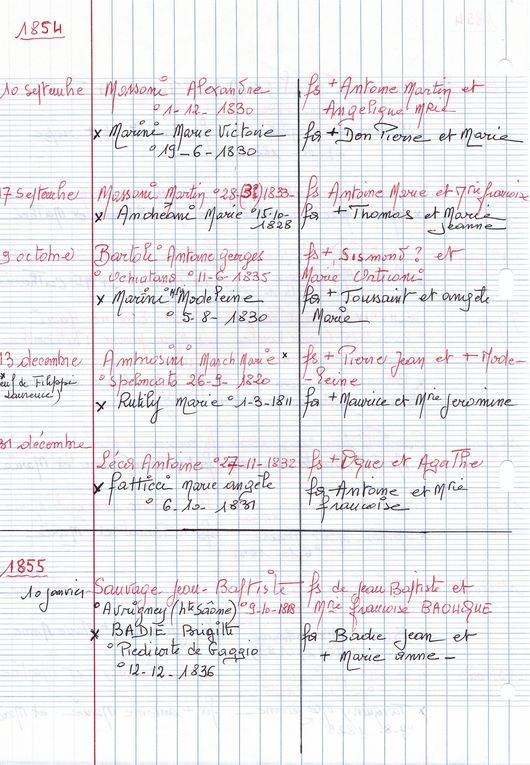 1854
10 septembre Massoni Alexandre fs + Antoine Martin et
° 1-12-1830 Angelique Mrie
x Marini Marie Victorie fa + Don Pierre et Marie
° 19-6-1830
17 septembre Massoni Martin ° 28- 1833- fs Antoine Marie et françoise
x Andreani Marie °15-10- fa + Thomas et Marie
1828 Jeanne
9 octobre Bartoli Antoine Georges fs + Sismond? et
° Ochiatana ° 11-6-1835 Marie
x Marini Modeleine fa + Toussaint et angele
° 5-8-1830 Marie
13 decembre Ambrosini March Marie x fs + Pierre Jean et + Mode-
(veuf de Filippi ° Speloncato 26-9-1820 -leine
Laurence) x Rutily marie ° 1-3-1811 fa + Maurice et Mrie Jeromine
31 décembre
Léca Antoine ° 27-11-1832 fs + Dque et Agathe
x fatticci marie angele fa Antoine et Mrie
° 6-10-1831 francoise
1855
10 janvier Sauvage Jean-Baptiste fs de Jean Baptiste et
° Avrigney (hte Saône) ° 9-10-1818 Mrie francoise
x BADIE Brigitte fa Badie Jean et
° Piedicorte de Gaggio + Marie anne -
° 12-12-1836